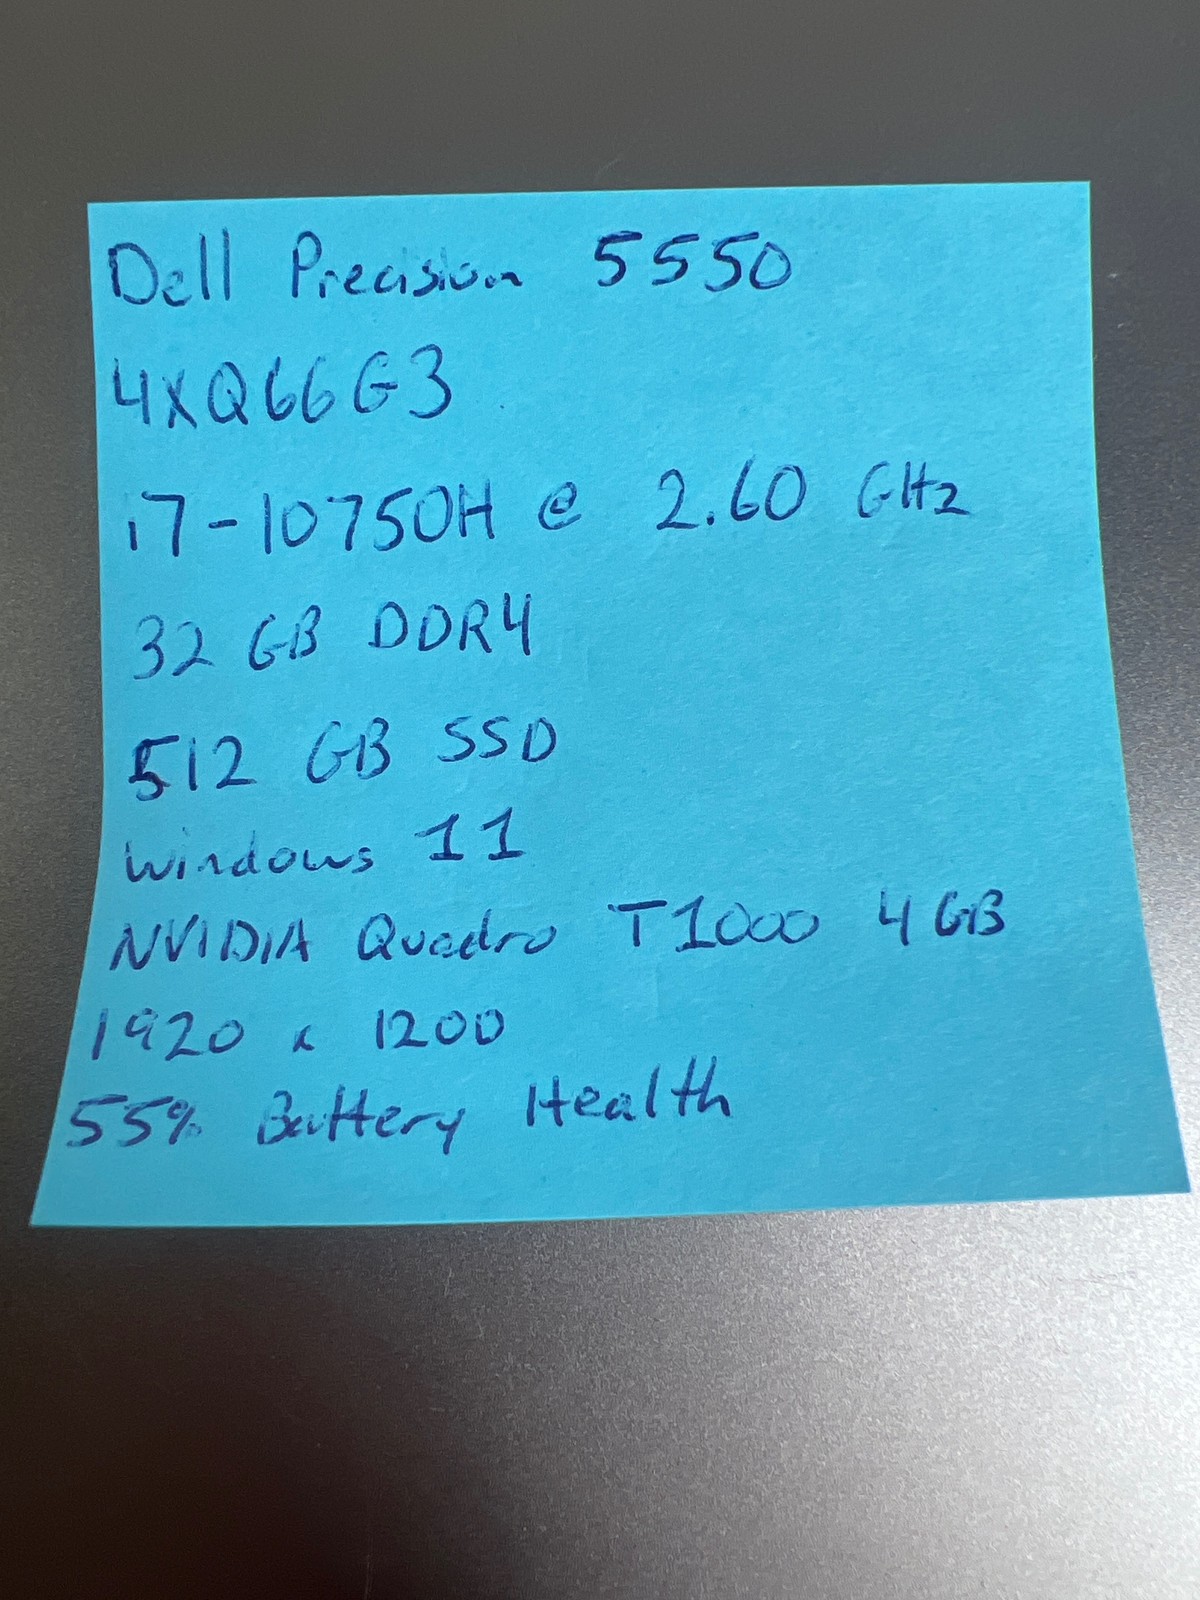 Dell Precision 5550
4XQ66G3
i7-10750H @ 2.60 GHz
32 GB DDR4
512 GB SSD
Windows 11
NVIDIA Quadro T1000 4GB
1920 x 1200
55% Battery Health